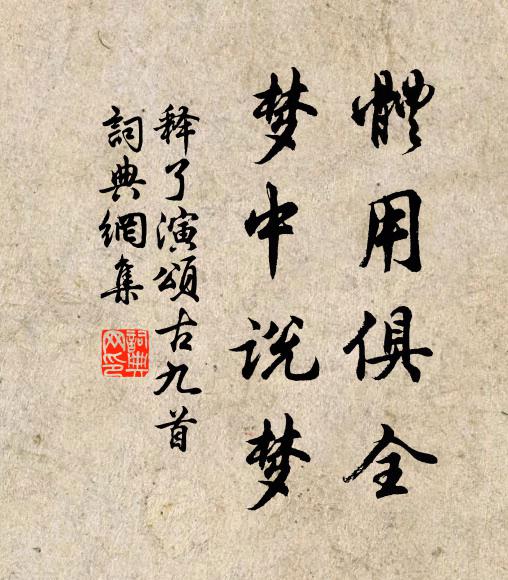 體用俱全
梦中说梦
释了演頌古九首
詞典網集
詞典网印